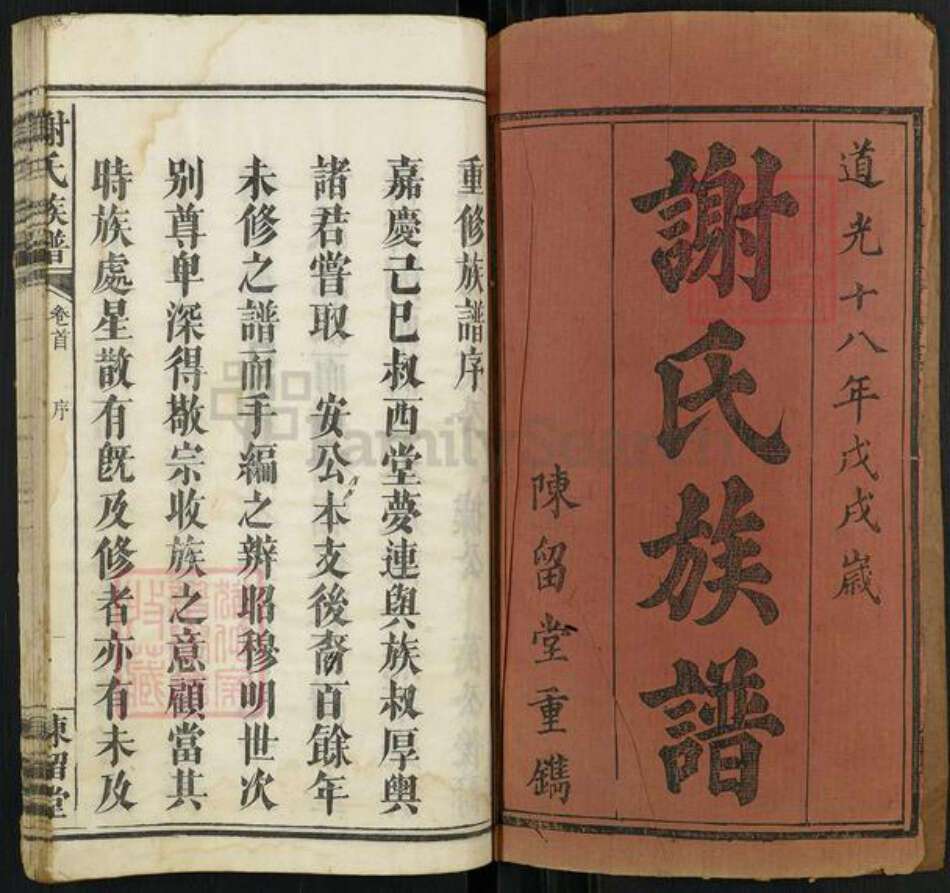 道光十八年戊戌歲
謝氏族譜
陳留堂重鐫
重修族譜序
嘉慶己巳叔西堂夢連與族叔厚輿
諸君嘗取 安公本支後裔百餘年
未修之譜而手編之辨昭穆明世次
别尊卑深得敬宗收族之意顧當其
時族處星散有既及修者亦有未及
謝氏族譜 卷首 序 一 陳留堂
FamilySearch